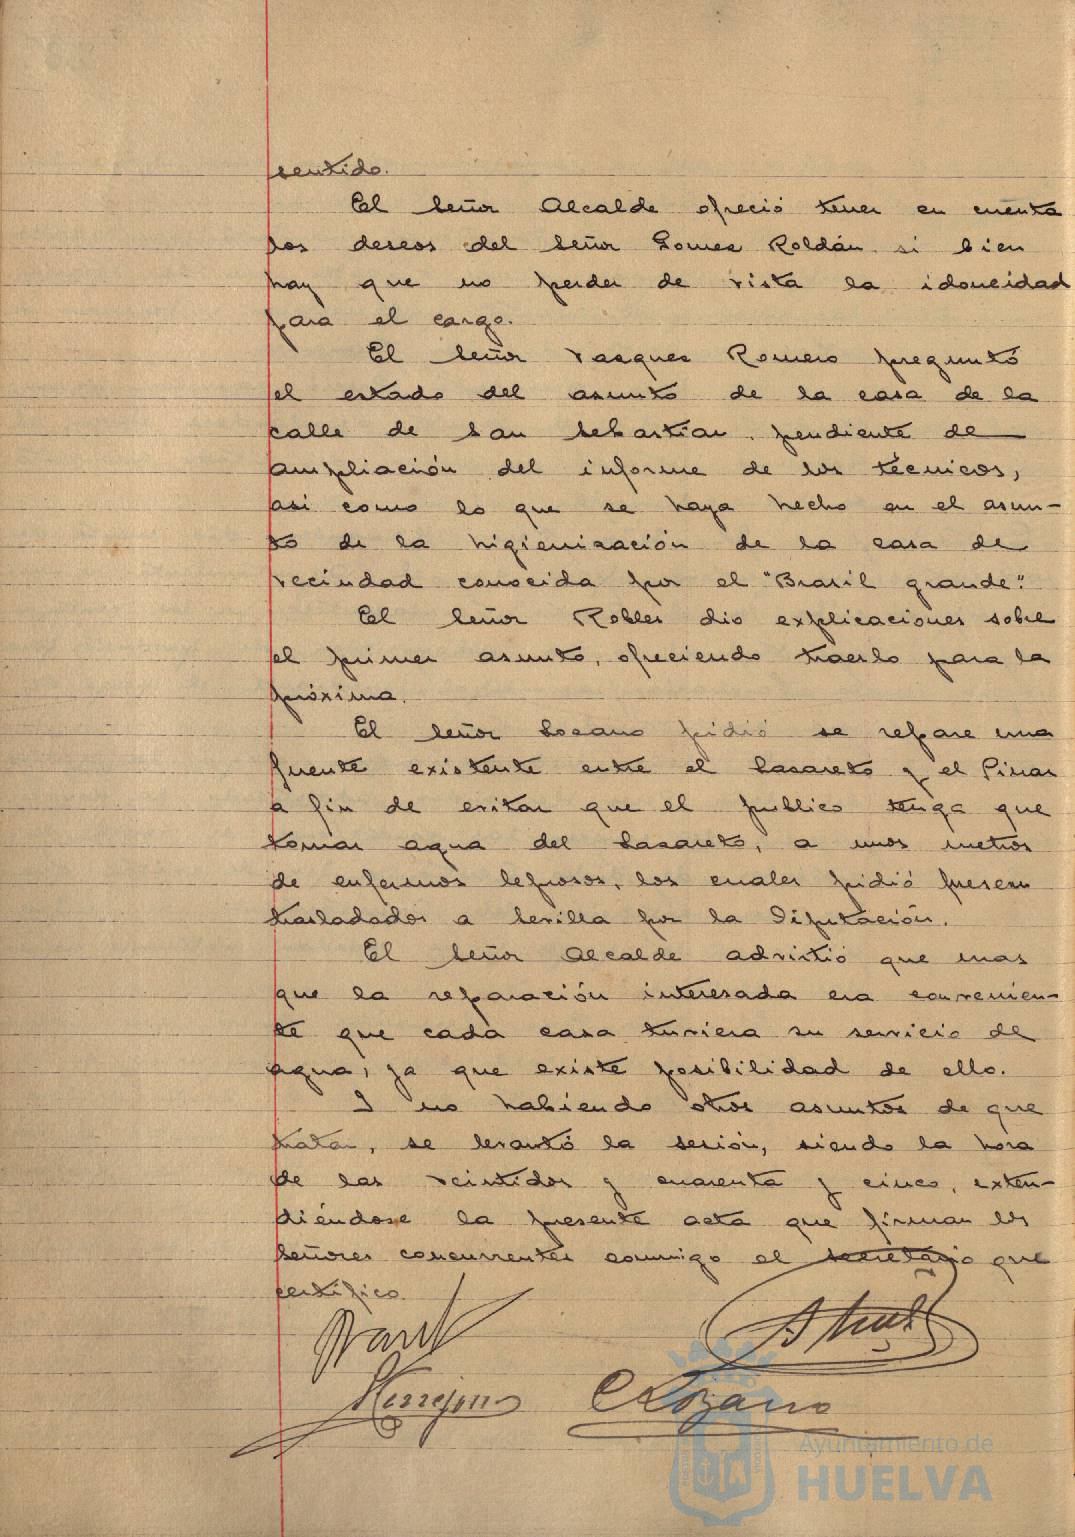 sentido.
El Señor Alcalde ofreció tener en cuenta
los deseos del Señor Gomez Roldán si bien
hay que no perder de vista la idoneidad
para el cargo.
El Señor Vazquez Romero preguntó
el estado del asunto de la casa de la
calle de San Sebastian, pendiente de
ampliación del informe de los técnicos,
asi como lo que se haya hecho en el asun-
to de la higienización de la casa de
vecindad conocida por el "Brasil grande".
El Señor Robles dio explicaciones sobre
el primer asunto, ofreciendo traerlo para la
próxima.
El Señor Lozano pidió se repare una
fuente existente entre el Lazareto y el Pinar
a fin de evitar que el publico tenga que
tomar agua del Lazareto, a unos metros
de enfermos leprosos, los cuales pidió fuesen
trasladados a Sevilla por la Diputación.
El Señor Alcalde advirtió que mas
que la reparación interesada era convenien-
te que cada casa tuviera su servicio de
agua, ya que existe posibilidad de ello.
I no habiendo otros asuntos de que
tratar, se levantó la sesión, siendo la hora
de las veintidos y cuarenta y cinco, exten-
diéndose la presente acta que firman los
Señores concurrentes conmigo el secretario que
certifico.
C Lozano
Ayuntamiento de
HUELVA